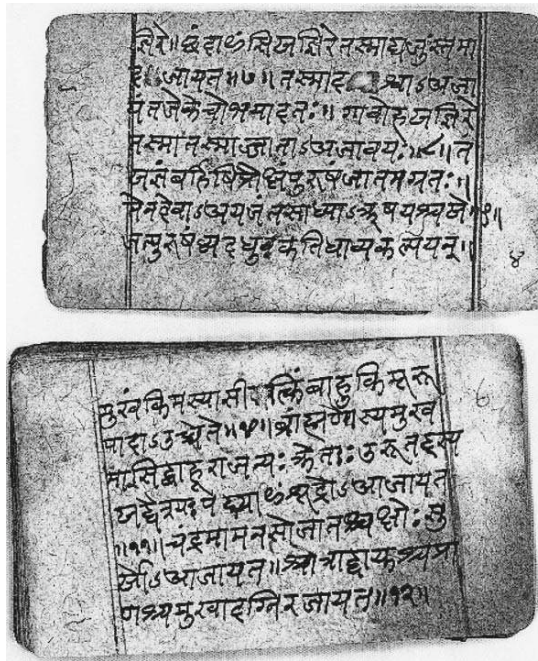 ज्ञिरे॥छंदाꣳसियज्ञिरेतस्माद्यजुंस्तमा
द॥जायत॥७॥तस्माद श्वाऽअजा
यतजेकेचोभयादतः॥गावोहयज्ञिरे
तस्मातस्माज्जाताऽअजावयः॥८॥त
यज्ञंबर्हिषिप्रौक्षपुरुषंजातमग्रतः॥
तेनदेवाऽअयजंतसाध्याऽऋषयश्यजे॥९॥
जत्पुरुषंव्यदधुःकतिधाव्यकल्पयन्॥
४
मुखंकिमस्यासी त्किंबाहुकिमुरू
पादाऽउच्येते॥ ॥ब्राह्मणोस्यमुख
मासिद्बाहूराजन्यःक्रेतः:उरूतदस्य
जद्वैश्यःपद्भ्याꣳशूद्रोऽआजायत
॥११॥चंद्रमामनसोजातश्चक्षोःसु
र्जोऽआजायत॥श्रोत्राद्वायुश्यप्रा
णश्यमुखादग्निरजायत॥१२॥